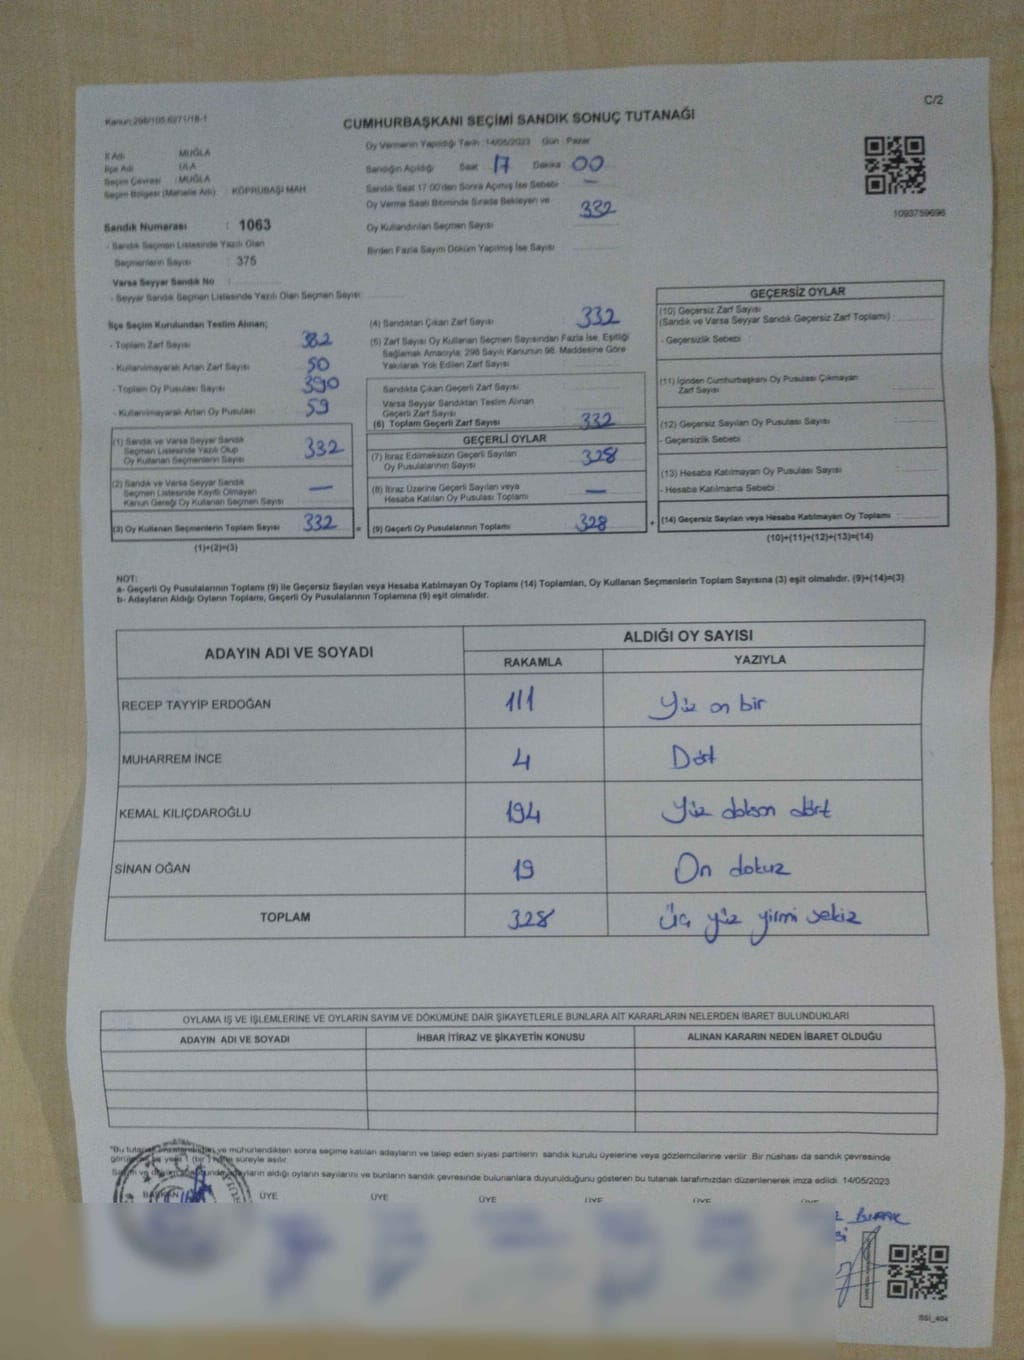 C/2
Kanun:298/105,6271/18-1
CUMHURBAŞKANI SEÇİMİ SANDIK SONUÇ TUTANAĞI
Oy Vermenin Yapıldığı Tarih :14/05/2023 Gün : Pazar
İl Adı : MUĞLA
İlçe Adı : ULA
Seçim Çevresi : MUĞLA
Seçim Bölgesi (Mahalle Adı) : KÖPRÜBAŞI MAH.
Sandığın Açıldığı Saat : 17 Dakika : 00
Sandık Saat 17:00'den Sonra Açılmış İse Sebebi : —
Oy Verme Saati Bitiminde Sırada Bekleyen ve
Oy Kullandırılan Seçmen Sayısı 332
Birden Fazla Sayım Döküm Yapılmış İse Sayısı :
1093759696
Sandık Numarası : 1063
- Sandık Seçmen Listesinde Yazılı Olan
Seçmenlerin Sayısı : 375
Varsa Seyyar Sandık No :
- Seyyar Sandık Seçmen Listesinde Yazılı Olan Seçmen Sayısı:
İlçe Seçim Kurulundan Teslim Alınan;
- Toplam Zarf Sayısı : 382
- Kullanılmayarak Artan Zarf Sayısı : 50
- Toplam Oy Pusulası Sayısı : 390
- Kullanılmayarak Artan Oy Pusulası : 59
(1) Sandık ve Varsa Seyyar Sandık
Seçmen Listesinde Yazılı Olup
Oy Kullanan Seçmenlerin Sayısı : 332
(2) Sandık ve Varsa Seyyar Sandık
Seçmen Listesinde Kayıtlı Olmayan
Kanun Gereği Oy Kullanan Seçmen Sayısı : —
(3) Oy Kullanan Seçmenlerin Toplam Sayısı : 332 =
(1)+(2)=(3)
(4) Sandıktan Çıkan Zarf Sayısı : 332
(5) Zarf Sayısı Oy Kullanan Seçmen Sayısından Fazla İse, Eşitliği
Sağlamak Amacıyla; 298 Sayılı Kanunun 98. Maddesine Göre
Yakılarak Yok Edilen Zarf Sayısı :
Sandıkta Çıkan Geçerli Zarf Sayısı :
Varsa Seyyar Sandıktan Teslim Alınan
Geçerli Zarf Sayısı :
(6) Toplam Geçerli Zarf Sayısı : 332
GEÇERLİ OYLAR
(7) İtiraz Edilmeksizin Geçerli Sayılan
Oy Pusulalarının Sayısı : 328
(8) İtiraz Üzerine Geçerli Sayılan veya
Hesaba Katılan Oy Pusulası Toplamı : —
(9) Geçerli Oy Pusulalarının Toplamı : 328 +
GEÇERSİZ OYLAR
(10) Geçersiz Zarf Sayısı
(Sandık ve Varsa Seyyar Sandık Geçersiz Zarf Toplamı) :
- Geçersizlik Sebebi :
(11) İçinden Cumhurbaşkanı Oy Pusulası Çıkmayan
Zarf Sayısı :
(12) Geçersiz Sayılan Oy Pusulası Sayısı :
- Geçersizlik Sebebi :
(13) Hesaba Katılmayan Oy Pusulası Sayısı :
- Hesaba Katılmama Sebebi :
(14) Geçersiz Sayılan veya Hesaba Katılmayan Oy Toplamı :
(10)+(11)+(12)+(13)=(14)
NOT:
a- Geçerli Oy Pusulalarının Toplamı (9) ile Geçersiz Sayılan veya Hesaba Katılmayan Oy Toplamı (14) Toplamları, Oy Kullanan Seçmenlerin Toplam Sayısına (3) eşit olmalıdır. (9)+(14)=(3)
b- Adayların Aldığı Oyların Toplamı, Geçerli Oy Pusulalarının Toplamına (9) eşit olmalıdır.
ADAYIN ADI VE SOYADI ALDIĞI OY SAYISI
RAKAMLA YAZIYLA
RECEP TAYYİP ERDOĞAN 111 Yüz on bir
MUHARREM İNCE 4 Dört
KEMAL KILIÇDAROĞLU 194 Yüz doksan dört
SİNAN OĞAN 19 On dokuz
TOPLAM 328 Üç yüz yirmi sekiz
OYLAMA İŞ VE İŞLEMLERİNE VE OYLARIN SAYIM VE DÖKÜMÜNE DAİR ŞİKAYETLERLE BUNLARA AİT KARARLARIN NELERDEN İBARET BULUNDUKLARI
ADAYIN ADI VE SOYADI İHBAR İTİRAZ VE ŞİKAYETİN KONUSU ALINAN KARARIN NEDEN İBARET OLDUĞU
*Bu tutanak ve mühürlendikten sonra seçime katılan adayların ve talep eden siyasi partilerin sandık kurulu üyelerine veya gözlemcilerine verilir. Bir nüshası da sandık çevresinde
(bir) hafta süreyle asılır.
adayların aldığı oyların sayılarını ve bunların sandık çevresinde bulunanlara duyurulduğunu gösteren bu tutanak tarafımızdan düzenlenerek imza edildi. 14/05/2023
BAŞKAN ÜYE ÜYE ÜYE ÜYE ÜYE ÜYE
SSİ_404